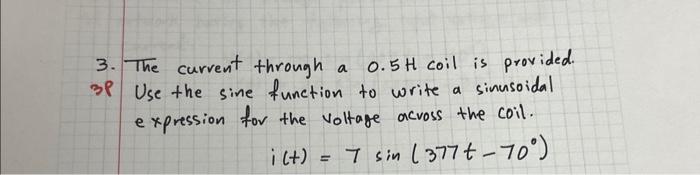 3. The current through a 0.5H coil is provided.
3P Use the sine function to write a sinusoidal
expression for the voltage across the coil.
i(t) = 7 sin (377t - 70°)